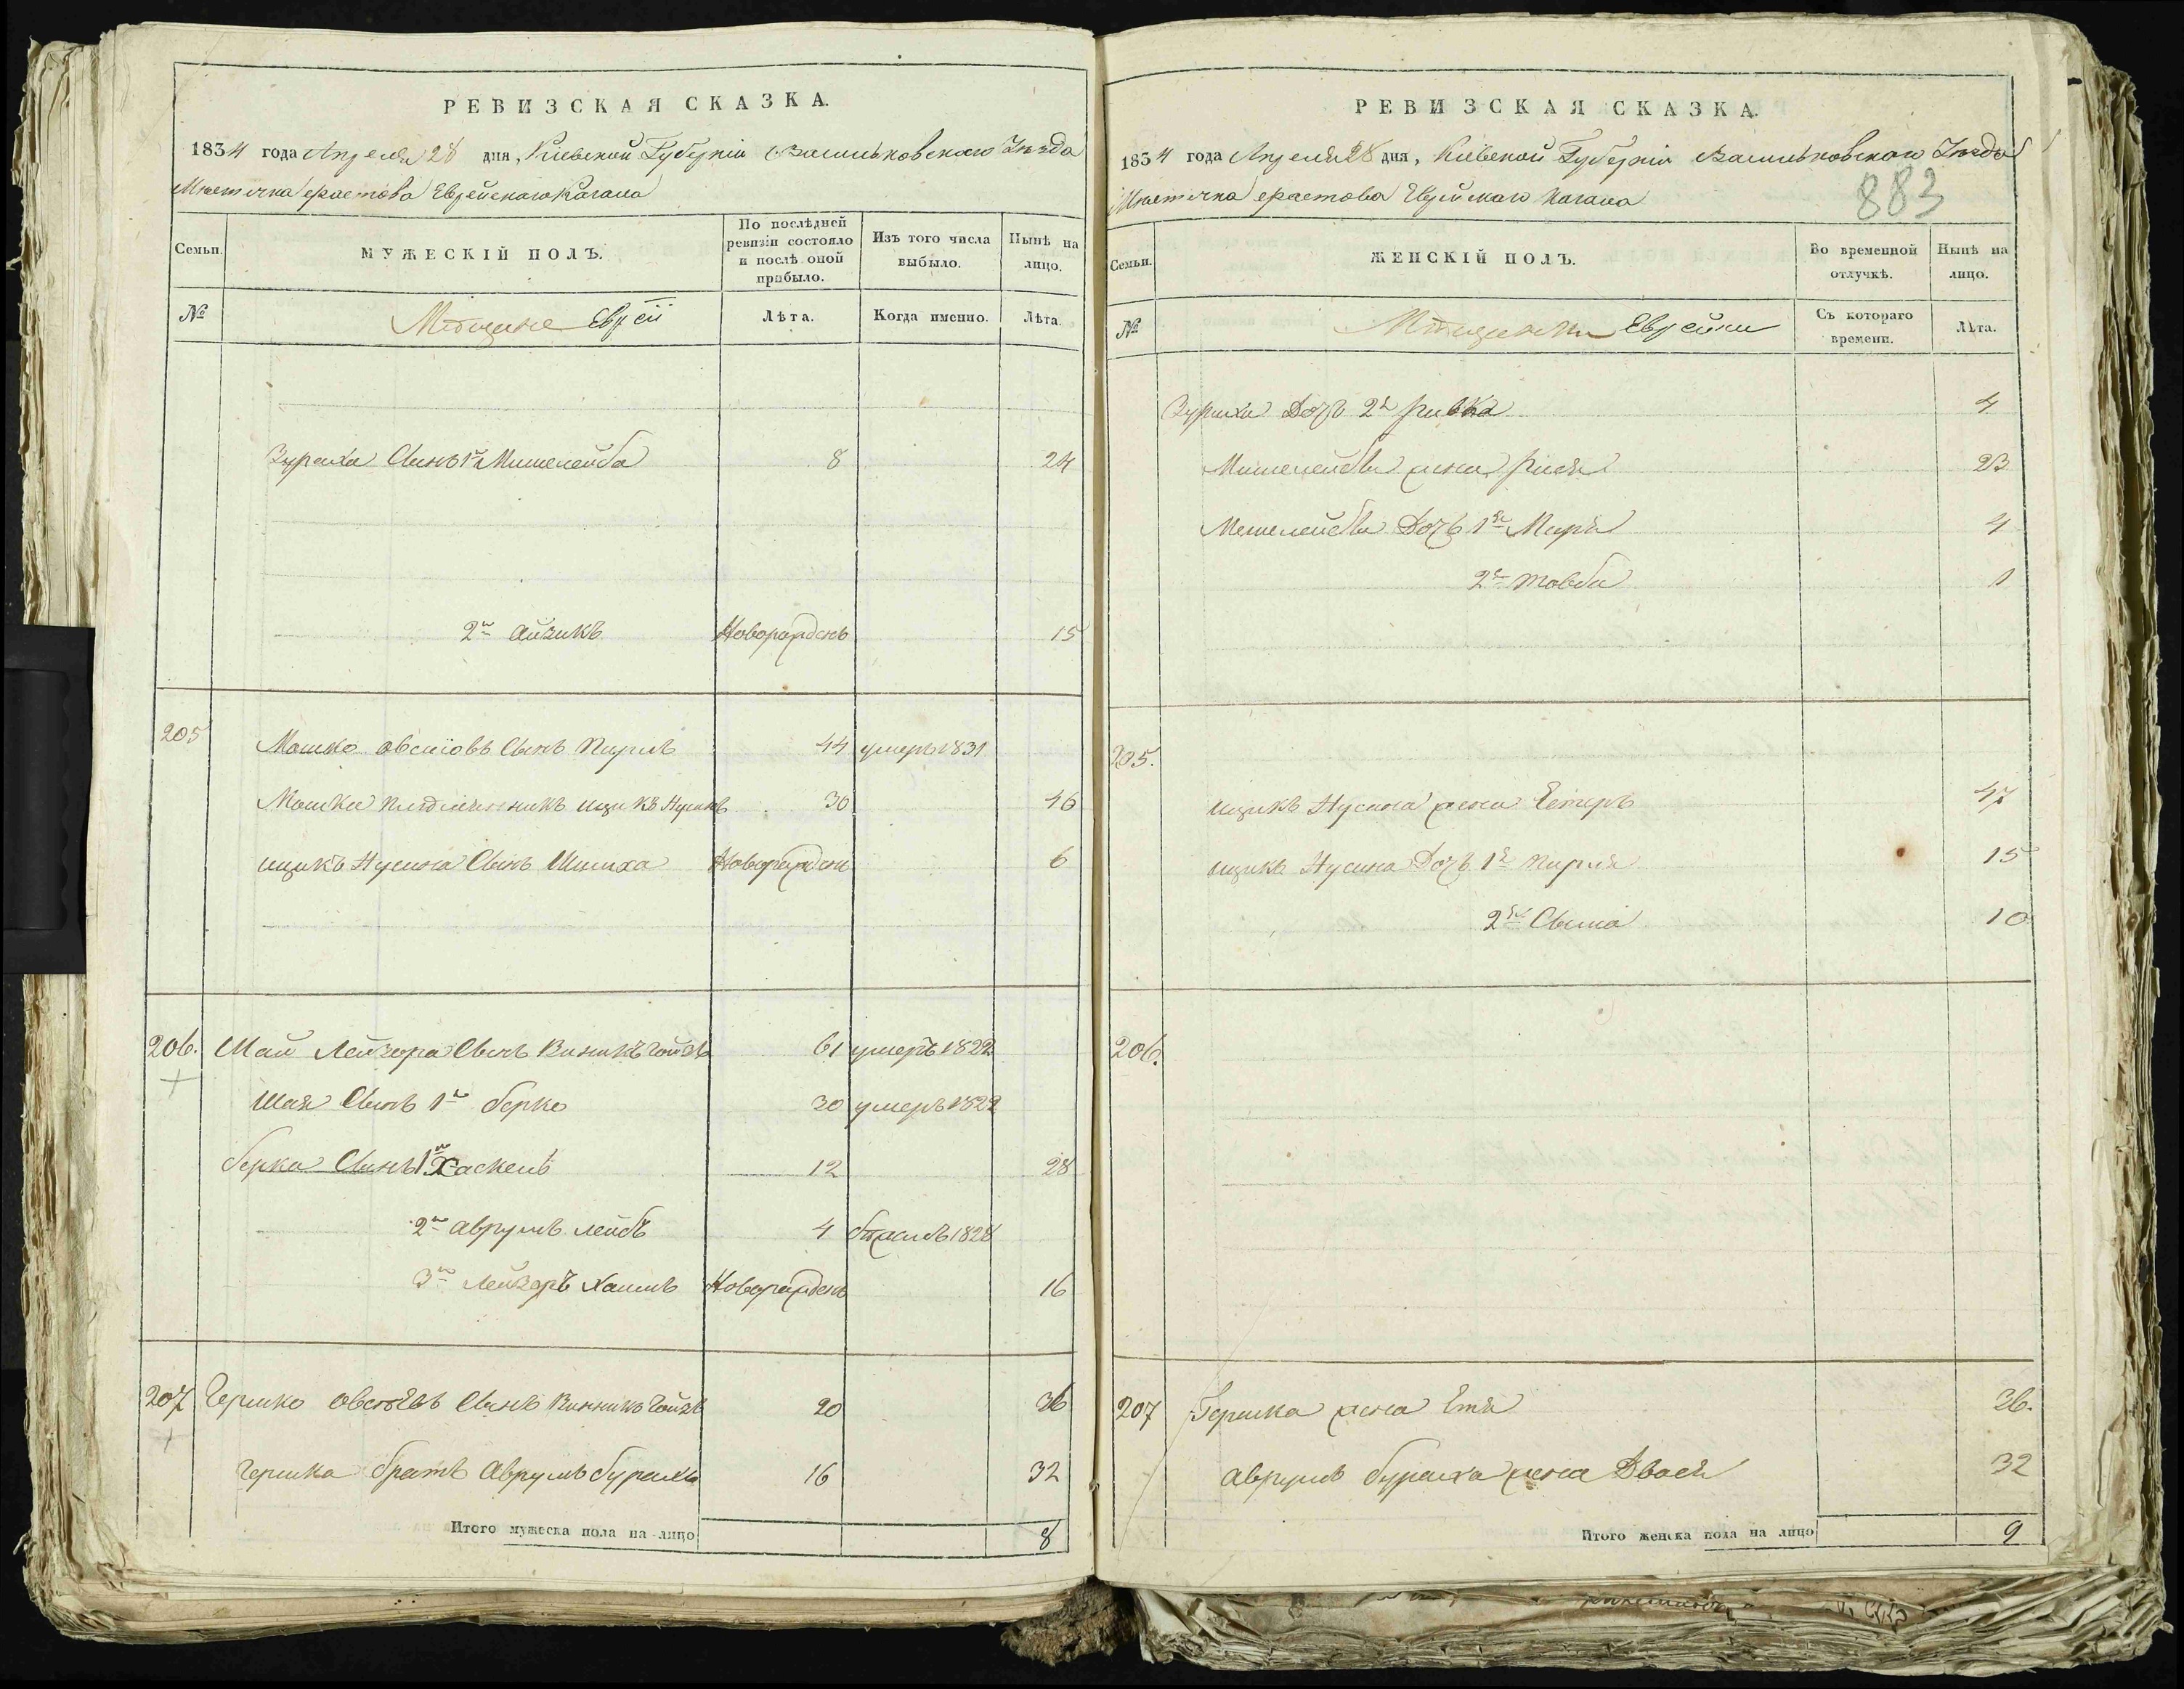 РЕВИЗСКАЯ СКАЗКА.
1834 года Апреля 28 дня, Кіевской Губерніи Васильковского Уѣзда
Мѣстечка Фастова Еврейского Кагала
Семьи. МУЖЕСКІЙ ПОЛЪ. По послѣдней ревизіи состояло и послѣ оной прибыло. Изъ того числа выбыло. Нынѣ на лицо.
№ Мѣщане Евреи Лѣта. Когда именно. Лѣта.
Сынъ 1й 8 24
2й Айзикъ Новорожденъ 15
205 Мошко Сынъ 44 умеръ 1831
Мошка племянникъ Ицикъ Нусинъ 30 46
Ицикъ Нусина Сынъ Новорожденъ 6
206. Лейзора Сынъ 61 умеръ 1822
Шая Сынъ 1й Берко 30 умеръ 1822
Берка Сынъ 1й Хаскель 12 28
2й Аврумъ Лейбъ 4 бѣжалъ 1828
3й Лейзоръ Хаимъ Новорожденъ 16
207 Гершко Сынъ 20 36
Гершка братъ Аврумъ 16 32
Итого мужеска пола на лицо 8
РЕВИЗСКАЯ СКАЗКА.
1834 года Апреля 28 дня, Кіевской Губерніи Васильковского Уѣзда
Мѣстечка Фастова Еврейского Кагала
883
Семьи. ЖЕНСКІЙ ПОЛЪ. Во временной отлучкѣ. Нынѣ на лицо.
№ Мѣщанки Еврейки Съ котораго времени. Лѣта.
Дочь 2я Ривка 4
жена Рися 23
Дочь 1я 4
2я Товба 1
205.
Ицикъ Нусина жена Естеръ 47
Ицикъ Нусина Дочь 1я Пирля 15
2я 10
206.
207 Гершка жена Етя 36.
Аврумъ жена Двося 32
Итого женска пола на лицо 9